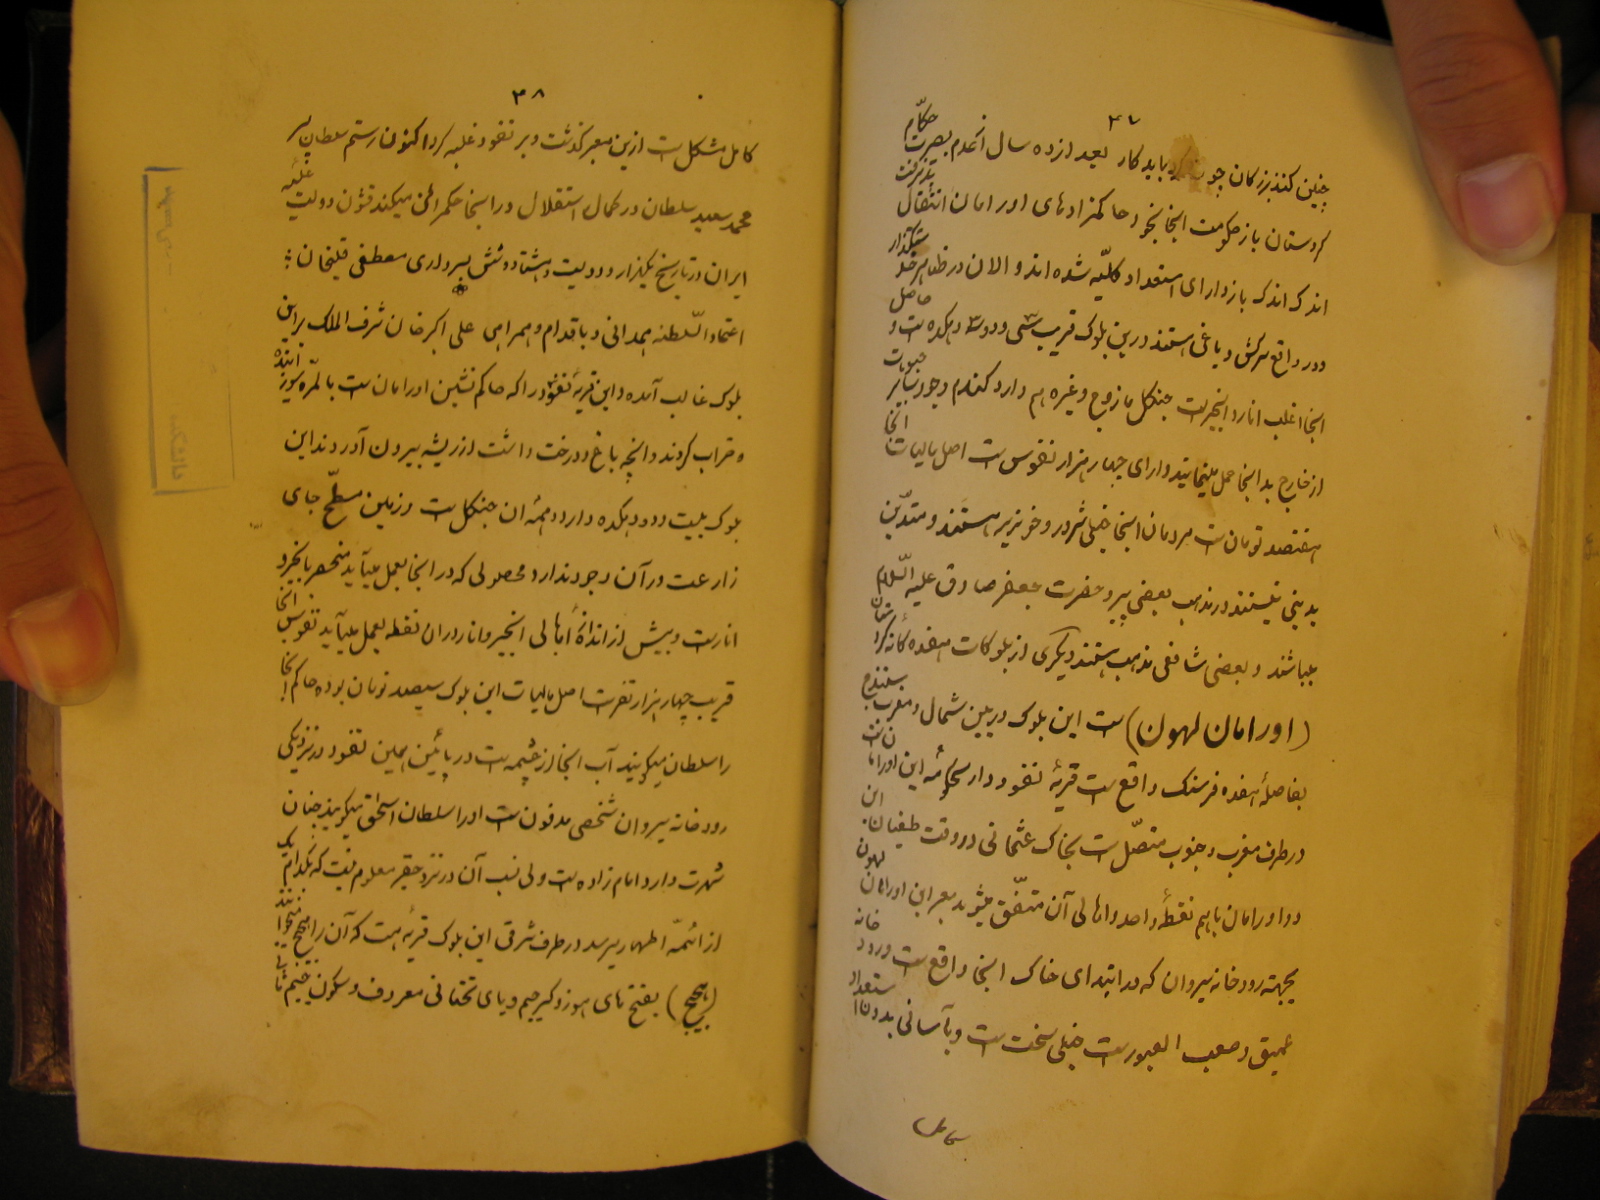 ۴۷
چنین کنند بزرگان چو کرد باید کار بعد از ده سال آنهم بصرت حکّام
کردستان باز حکومت اینجا بخود حاکمزادهای اورامان انتقال پذیرفت
اندک اندک باز دارای استعداد کلیّه شده اند و الان در ظاهر خدمتگذار
و در واقع سرکش و یاغی هستند درین بلوک قریب سی و دو سه دهکده است و حاصل
اینجا اغلب انار و انجیر است جنگل مازوج و غیره هم دارد گندم و جو و سایر حبوبات
از خارج بدانجا حمل مینمایند دارای چهار هزار نفوس است اصل مالیات آنجا
هفتصد تومان است مردمان اینجا خیلی شرور و خونریز هستند و متدیّن
بدینی نیستند در مذهب بعضی پیرو حضرت جعفر صادق علیه السّلام
میباشند و بعضی شافعی مذهب هستند دیگری از بلوکات هفده گانه کردستان
(اورامان لهون) است این بلوک در بین شمال و مغرب سنندج
بفاصلهٔ هفده فرسنگ واقع است قریهٔ نفسود دارالحکومهٔ این اورامان است
در طرف مغرب و جنوب متصّل است بخاک عثمانی در وقت طغیان این
دو اورامان باهم نقطهٔ واحد و اهالی آن متّفق میشوند معبر این اورامان لهون
بجهة رودخانه سیروان که در ابتدای خاک اینجا واقع است و رودخانه
عمیق و صعب العبور است خیلی سخت است و بآسانی بدون استعداد
کامل
۴۸
کامل مشکل است ازین معبر گذشت و بر نفسود غلبه کرد اکنون رستم سلطان پسر
محمد سعید سلطان در کمال استقلال در اینجا حکمرانی میکند قشون دولت علیّه
ایران در تاریخ یکهزار و دویست و هشتاد و شش بسرداری مصطفی قلیخان
اعتماد السّلطنه همدانی و باقدام و همراهی علی اکبر خان شرف الملک بر این
بلوک غالب آمده و این قریهٔ نفسود را که حاکم نشین اورامان است بالمرّه سوزانیده
و خراب کردند و آنچه باغ و درخت داشت از ریشه بیرون آوردند این
بلوک بیست و دو دهکده دارد و همهٔ آن جنگل است و زمین مسطّح جای
زراعت در آن وجود ندارد و محصولی که در اینجا بعمل میآید منحصر بانجیر و
انار است و بیش از اندازهٔ اهالی انجیر و انار در آن نقطه بعمل میآید نفوس آنجا
قریب چهار هزار نفر است اصل مالیات این بلوک سیصد تومان بوده حاکم اینجا
را سلطان میگویند آب اینجا از چشمه است در پائین همین نفسود در نزدیکی
رودخانه سیروان شخصی مدفون است او را سلطان اسحق میگویند چنان
شهرت دارد امام زاده است ولی نسب آن در نزد حقیر معلوم نیست که بکدام یک
از ائمّه اطهار میرسد در طرف شرقی این بلوک قریهٔ هست که آن را هجیج میخوانند
(هجیج) بفتح های هوز و کسر جیم و یای تحتانی معروف و سکون جیم ثانی